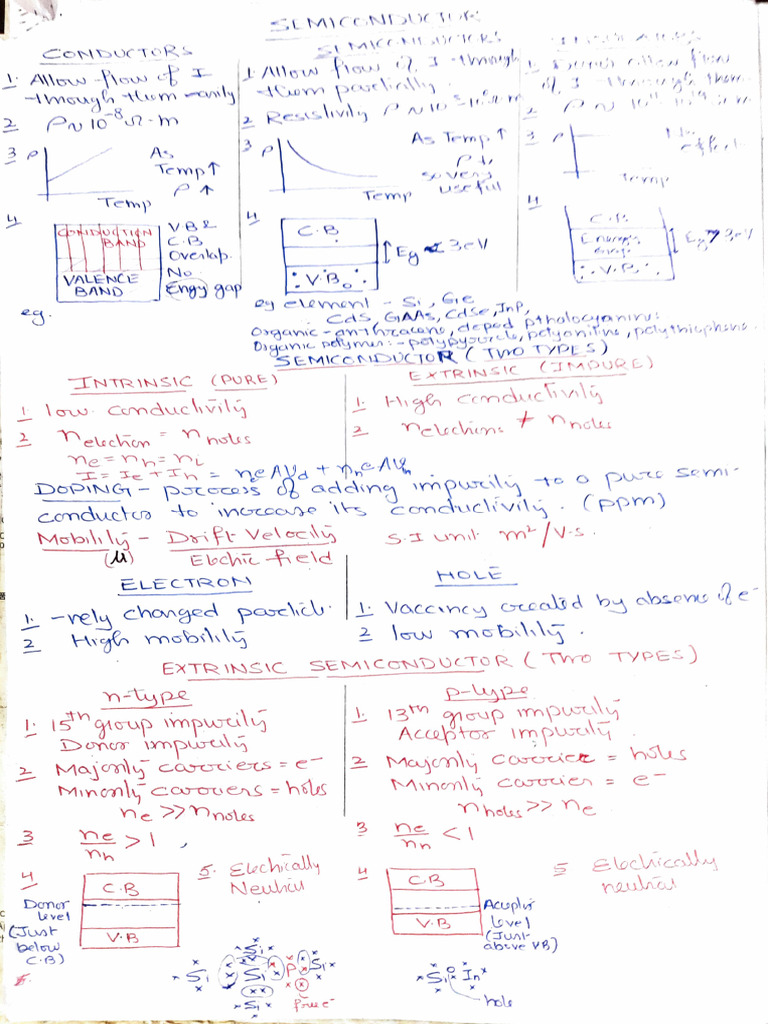 SEMICONDUCTOR
CONDUCTORS
1. Allow flow of I
through them easily
2 ρ ~ 10⁻⁸ Ω-m
3 ρ
As
Temp ↑
ρ ↑
Temp
4
CONDUCTION
BAND
VALENCE
BAND
VB &
C.B
Overlap.
No
Engy gap
eg.
SEMICONDUCTORS
1. Allow flow of I through
them partially
2 Resistivity ρ ~
3 ρ
As Temp ↑
ρ ↓
so very
useful
Temp
4
C.B
V.B
Eg < 3eV
eg element - Si, Ge
CdS, GaAs, CdSe, InP,
Organic - anthracene, doped pthalocyanines
Organic polymer:- polypyrrole, polyaniline, polythiophene.
1. flow
of I through them
2 ρ ~
3 ρ
Temp
4
C.B
Energy
V.B
Eg > 3eV
SEMICONDUCTOR (TWO TYPES)
INTRINSIC (PURE)
1 low conductivity
2 nelection = nholes
ne = nh = ni
I = Ie + Ih = neAVd + nheAVh
EXTRINSIC (IMPURE)
1. High conductivity
2 nelections ≠ nholes
DOPING - process of adding impurity to a pure semi-
conductor to increase its conductivity. (ppm)
Mobility - Drift Velocity
(μ) Electric field
S.I unit m²/V.s.
ELECTRON
1. -vely charged particle.
2 High mobility
HOLE
1. Vaccincy created by absence of e⁻
2 low mobility.
EXTRINSIC SEMICONDUCTOR (TWO TYPES)
n-type
1. 15th group impurity
Donor impurity
2 Majority carriers = e⁻
Minority carriers = holes
ne >> nholes
3 ne/nh > 1
4
C.B
V.B
Donor
level
(Just
below
C.B)
5. Electrically
Neutral
Si Si Si P Si Si
free e⁻
p-type
1. 13th group impurity
Acceptor impurity
2 Majority carrier = holes
Minority carrier = e⁻
nholes >> ne
3 ne/nh < 1
4
C.B
V.B
Acceptor
level
(Just
above VB)
5 Electrically
neutral
Si In
hole